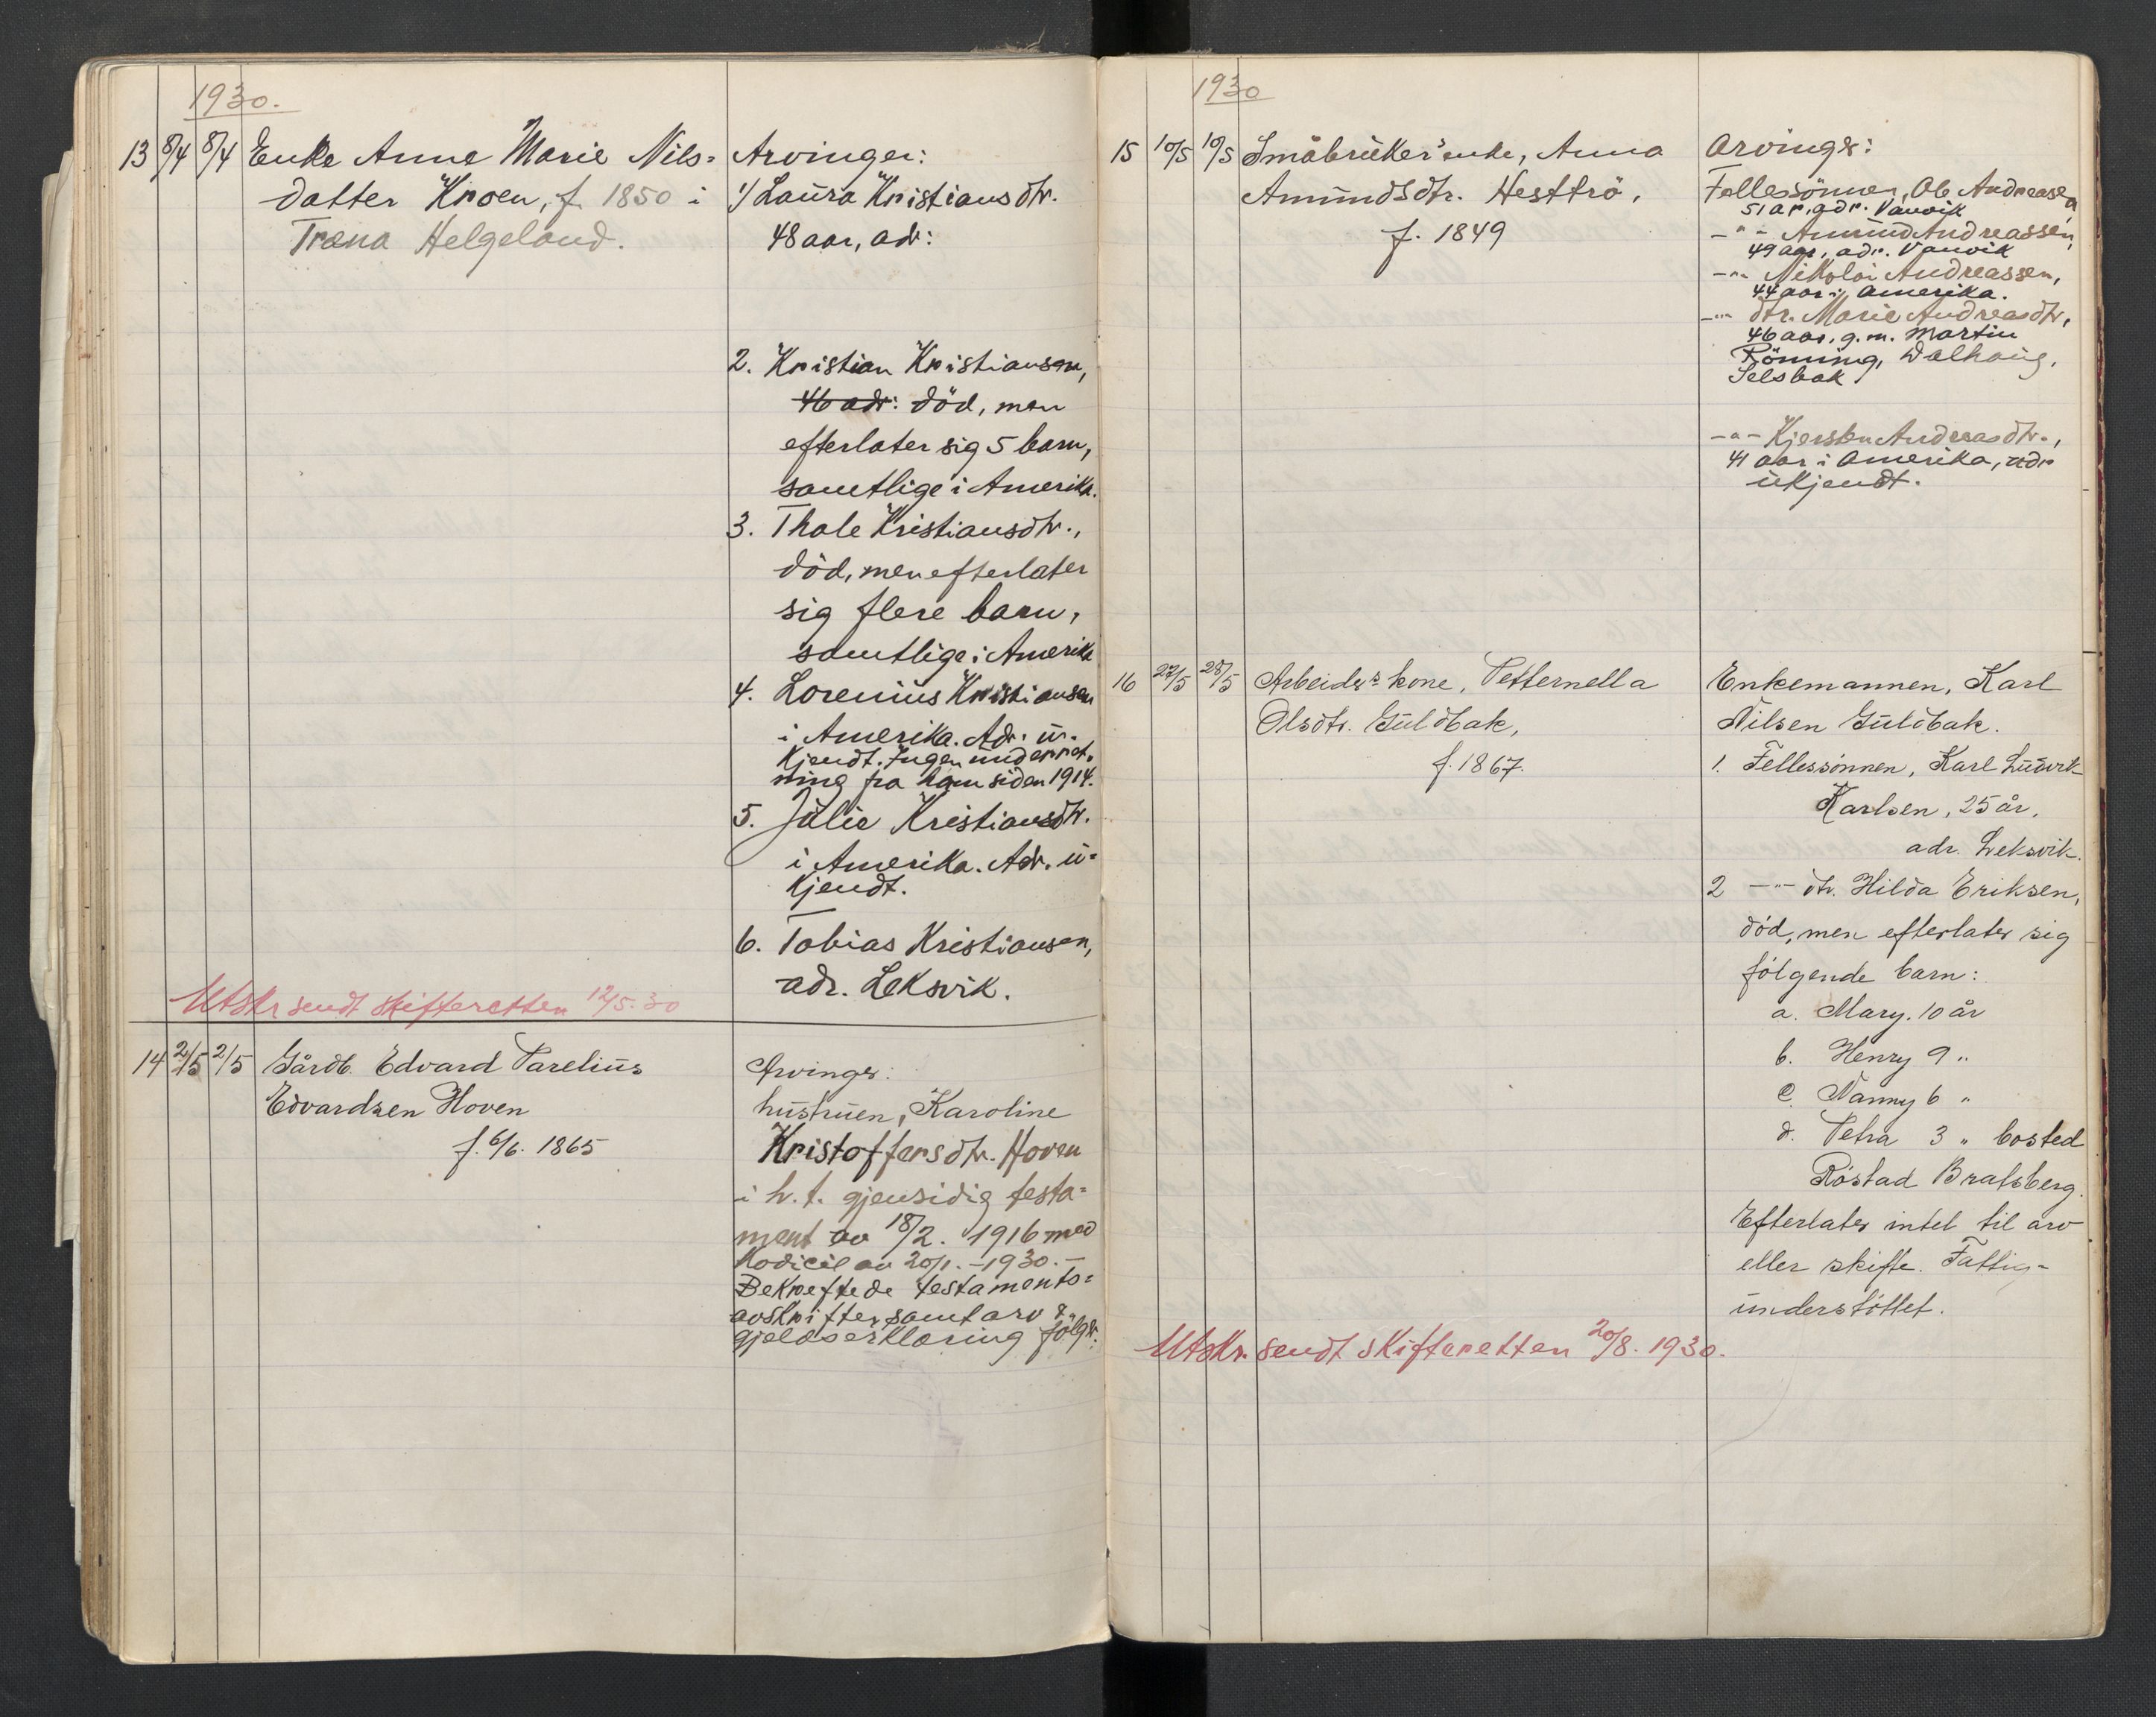 1930.
13 8/4 8/4 Enke Anne Marie Nils=
datter Kroen, f. 1850 i
Træna Helgeland.
Arvinger:
1/ Laura Kristiansdtr.
48 aar, adr:
2. Kristian Kristiansen,
46 adr: död, men
efterlater sig 5 barn,
samtlige i Amerika.
3. Thale Kristiansdtr.,
död, men efterlater
sig flere barn,
samtlige i Amerika
4. Lorenius Kristiansen
i Amerika. Adr. u-
kjendt. Ingen underret-
ning fra ham siden 1914.
5. Julie Kristiansdtr.
i Amerika. Adr. u=
kjendt.
6. Tobias Kristiansen,
adr. Leksvik.
Utskr sendt skifteretten 12/5.30
14 2/5 2/5 Gårdb. Edvard Parelius
Edvardsen Hoven
f. 6/6. 1865
Arvinger:
hustruen, Karoline
Kristoffersdtr. Hoven
i h.t. gjensidig testa=
ment av 18/2. 1916 med
kodicil av 20/1. -1930.-
Bekreftede testaments=
avskrifter samt arv &
gjeldserklæring følger.
1930
15 10/5 10/5 Småbruker'enke, Anna
Amundsdtr. Hesttrö,
f. 1849
Arvinger:
Fellessönnen, Ole Andreasen,
51 ar, adr. Vanvik
-"- Amund Andreassen,
49 aar, adr. Vanvik
-"- Nikolai Andreassen,
44 aar i Amerika.
-"- dtr. Marie Andreasdtr,
46 aar, g.m. Martin
Rönning, Dalhaug,
Selsbak
-"- Kjersten Andreasdtr.,
41 aar i Amerika, adr.
ukjendt.
16 27/5 28/5 Arbeiders kone, Petternella
Olsdtr. Guldbak,
f. 1867.
Enkemannen, Karl
Nilsen Guldbak.
1. Fellessönnen, Karl Ludvik
Karlsen, 25 år,
adr. Leksvik.
2 -"- dtr. Hilda Eriksen,
död, men efterlater sig
fölgende barn:
a. Mary. 10 år
b. Henry 9 "
c. Nanny 6 "
d. Petra 3 " bosted
Röstad Bratsberg.
Efterlater intet til arv
eller skifte. Fattig-
understöttet.
Utskr. sendt skifteretten 20/8. 1930.